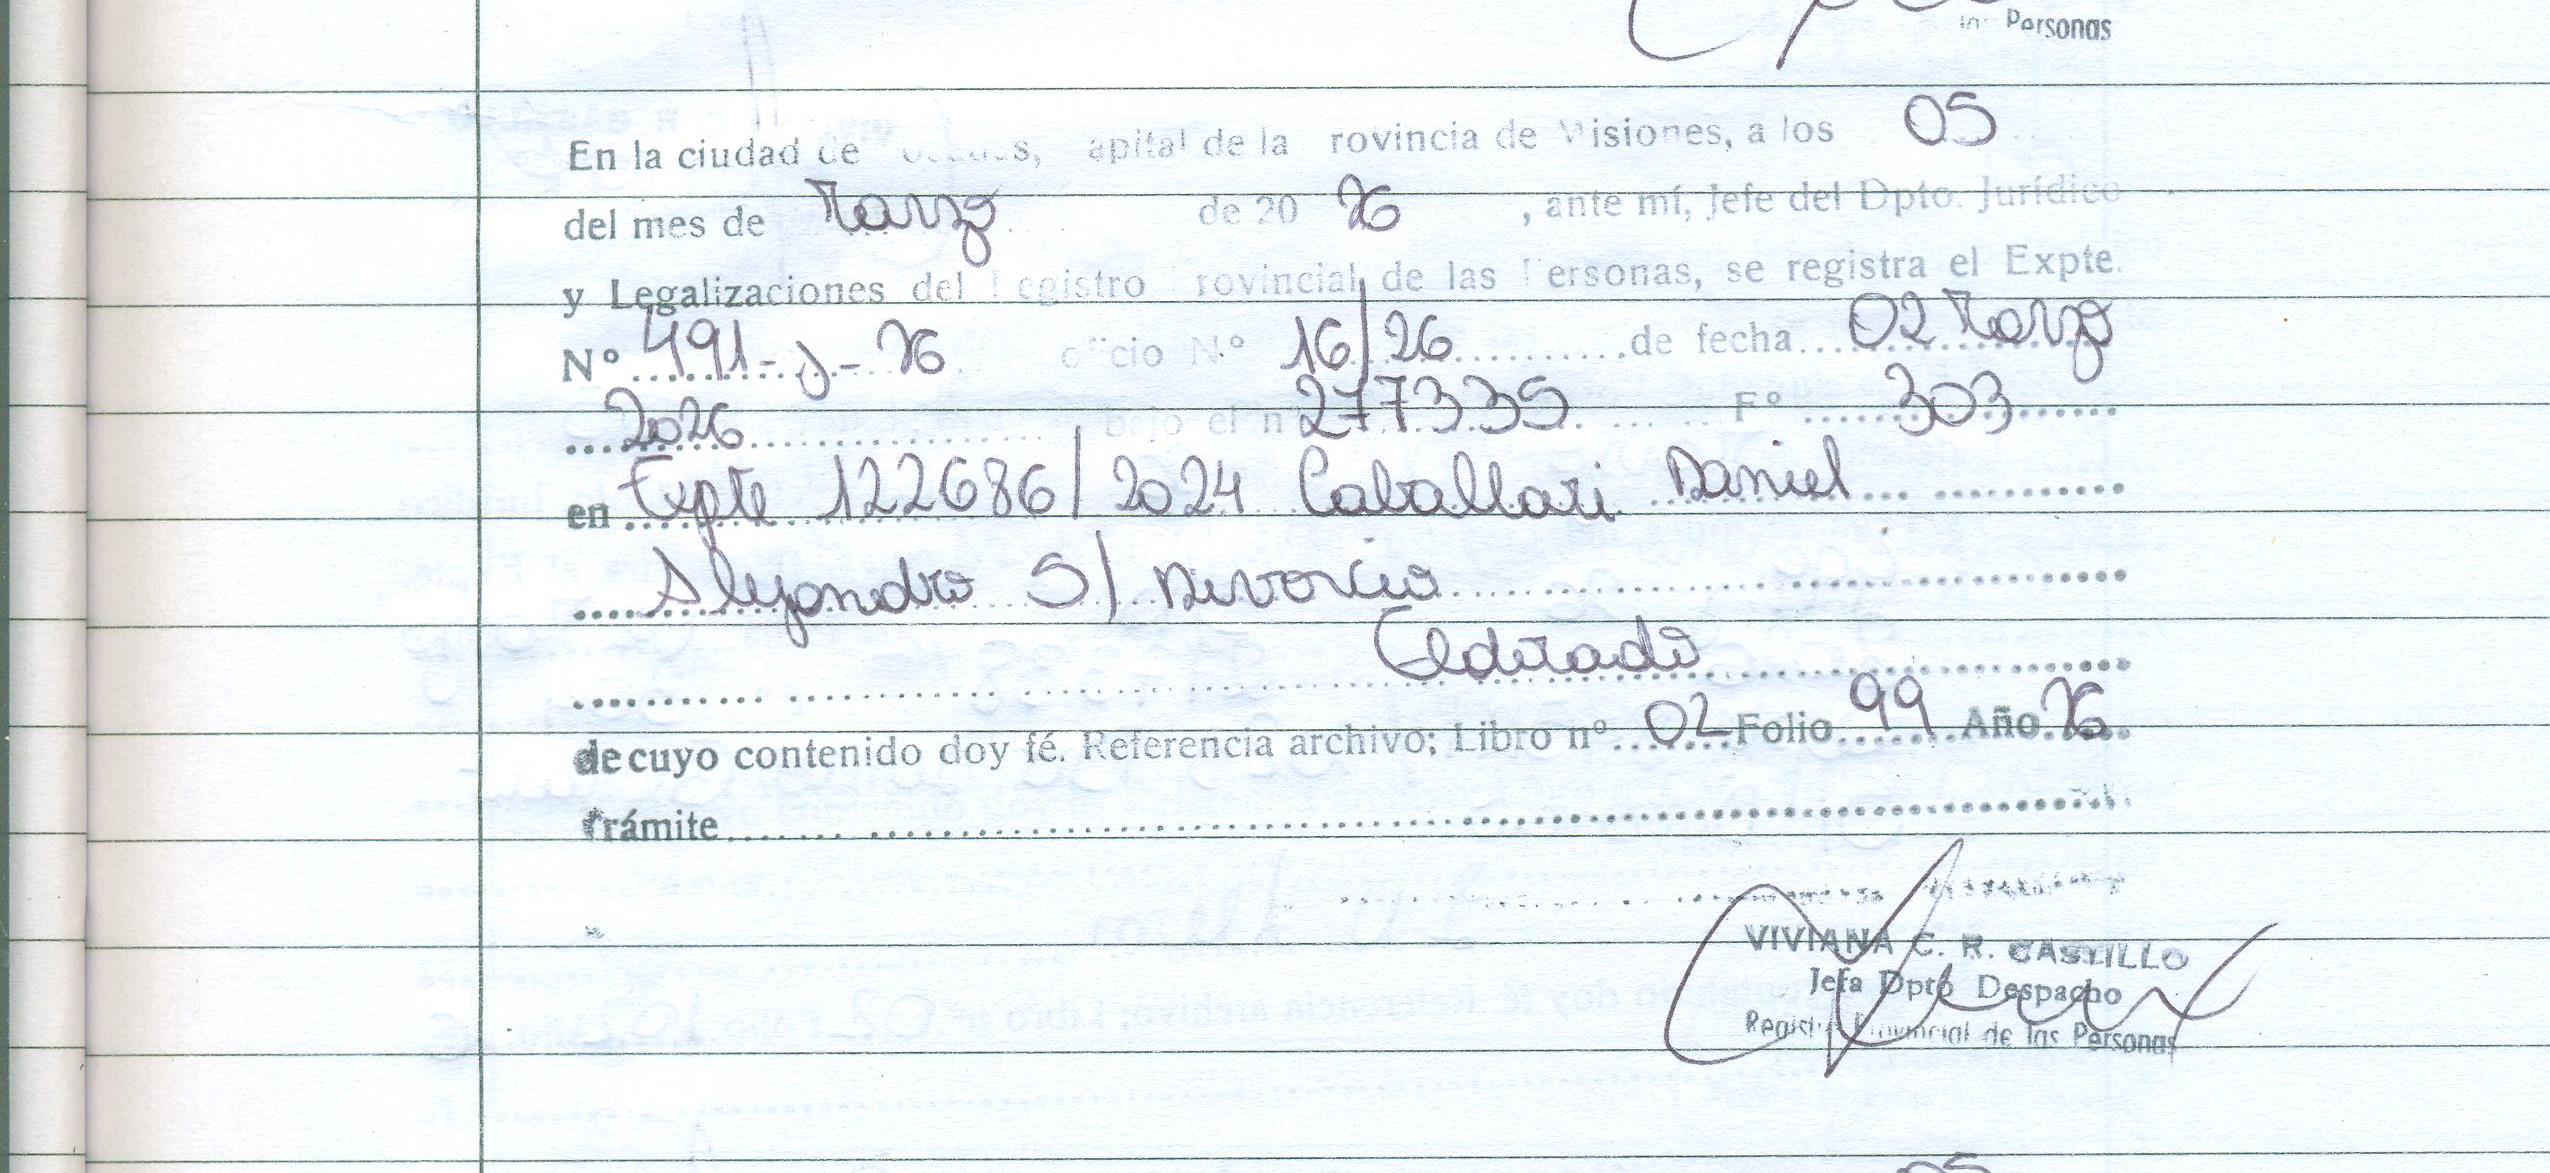 las Personas
En la ciudad de Posadas, Capital de la Provincia de Misiones, a los 05
del mes de Marzo de 20 26, ante mí, Jefe del Dpto. Jurídico
y Legalizaciones del Registro Provincial de las Personas, se registra el Expte.
Nº 491-J-26 oficio Nº 16/26 de fecha 02 Marzo
2026 bajo el nº 277335 Fº 303
en Expte 122686/2024 Caballari Daniel
Alejandro S/ Divorcio
Eldorado
de cuyo contenido doy fé. Referencia archivo; Libro nº 02 Folio 99 Año 26
Trámite
VIVIANA C. R. CASTILLO
Jefa Dpto Despacho
Registro Provincial de las Personas
05